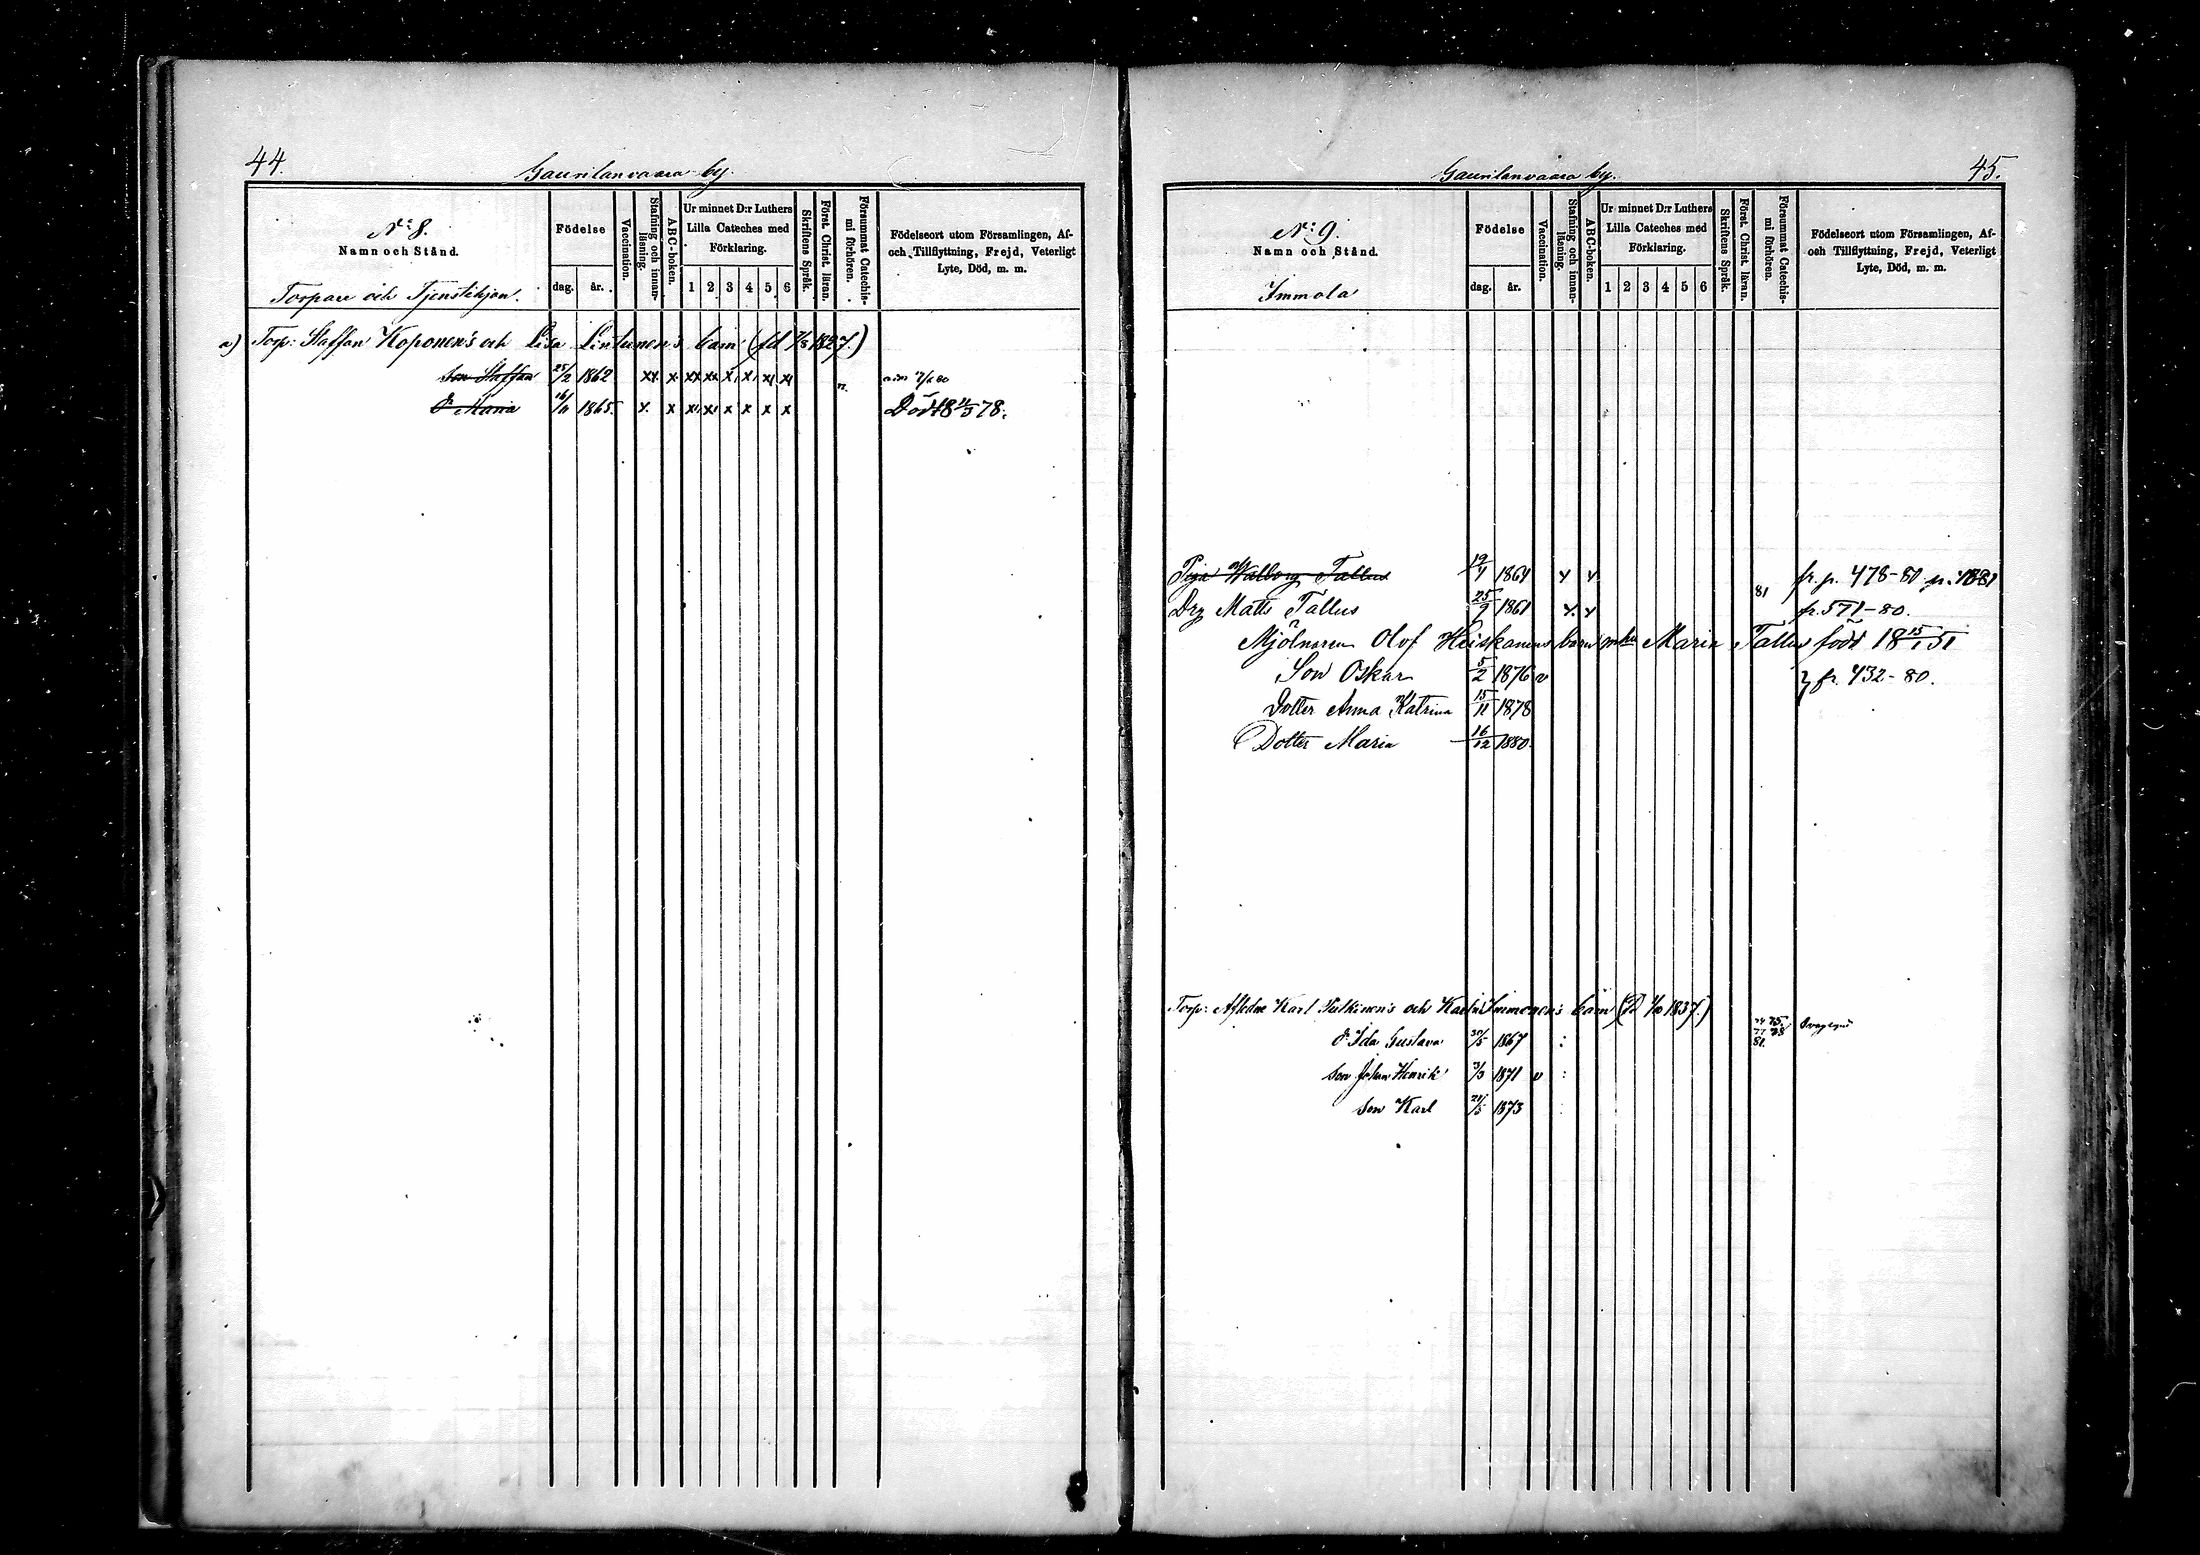 44.
Gaurilanvaara by.
N:o 8.
Namn och Stånd.
Torpare och Tjenstehjon.
Födelse
dag. år.
Vaccination.
Stafning och innanläsning.
ABC-boken.
Ur minnet D:r Luthers
Lilla Cateches med
Förklaring.
1 2 3 4 5 6
Skriftens Språk.
Först. Christ. läran.
Försummat Catechismi förhören.
Födelseort utom Församlingen, Af-
och Tillflyttning, Frejd, Veterligt
Lyte, Död, m. m.
a) Torp: Staffan Koponen's och Lisa Lintunen's barn (fd 7/8 1827.)
Son Staffan 25/2 1862 xx x xx xx x x x x
D:r Maria 16/11 1865. x x x x x x x x Död 18 11/3 78.
45.
Gaurilanvaara by.
N:o 9.
Namn och Stånd.
Immola
Födelse
dag. år.
Vaccination.
Stafning och innanläsning.
ABC-boken.
Ur minnet D:r Luthers
Lilla Cateches med
Förklaring.
1 2 3 4 5 6
Skriftens Språk.
Först. Christ. läran.
Försummat Catechismi förhören.
Födelseort utom Församlingen, Af-
och Tillflyttning, Frejd, Veterligt
Lyte, Död, m. m.
Piga Walborg Tallus 19/4 1864 x x fr. p. 478-80
Drg Matts Tallus 25/9 1861 x x 81 fr. 571-80.
Mjölnaren Olof Heiskanens barn m hu Maria Tallus född 18 15/1 51
Son Oskar 5/2 1876 v } fr. 432-80.
Dotter Anna Katrina 15/11 1878
Dotter Maria 16/12 1880.
Torp: Aflidne Karl Pulkinen's och Karin Immonen's barn (fd 1/10 1837.)
D:r Ida Gustava 30/5 1867
Son Johan Henrik 3/3 1871 v
Son Karl 21/5 1873